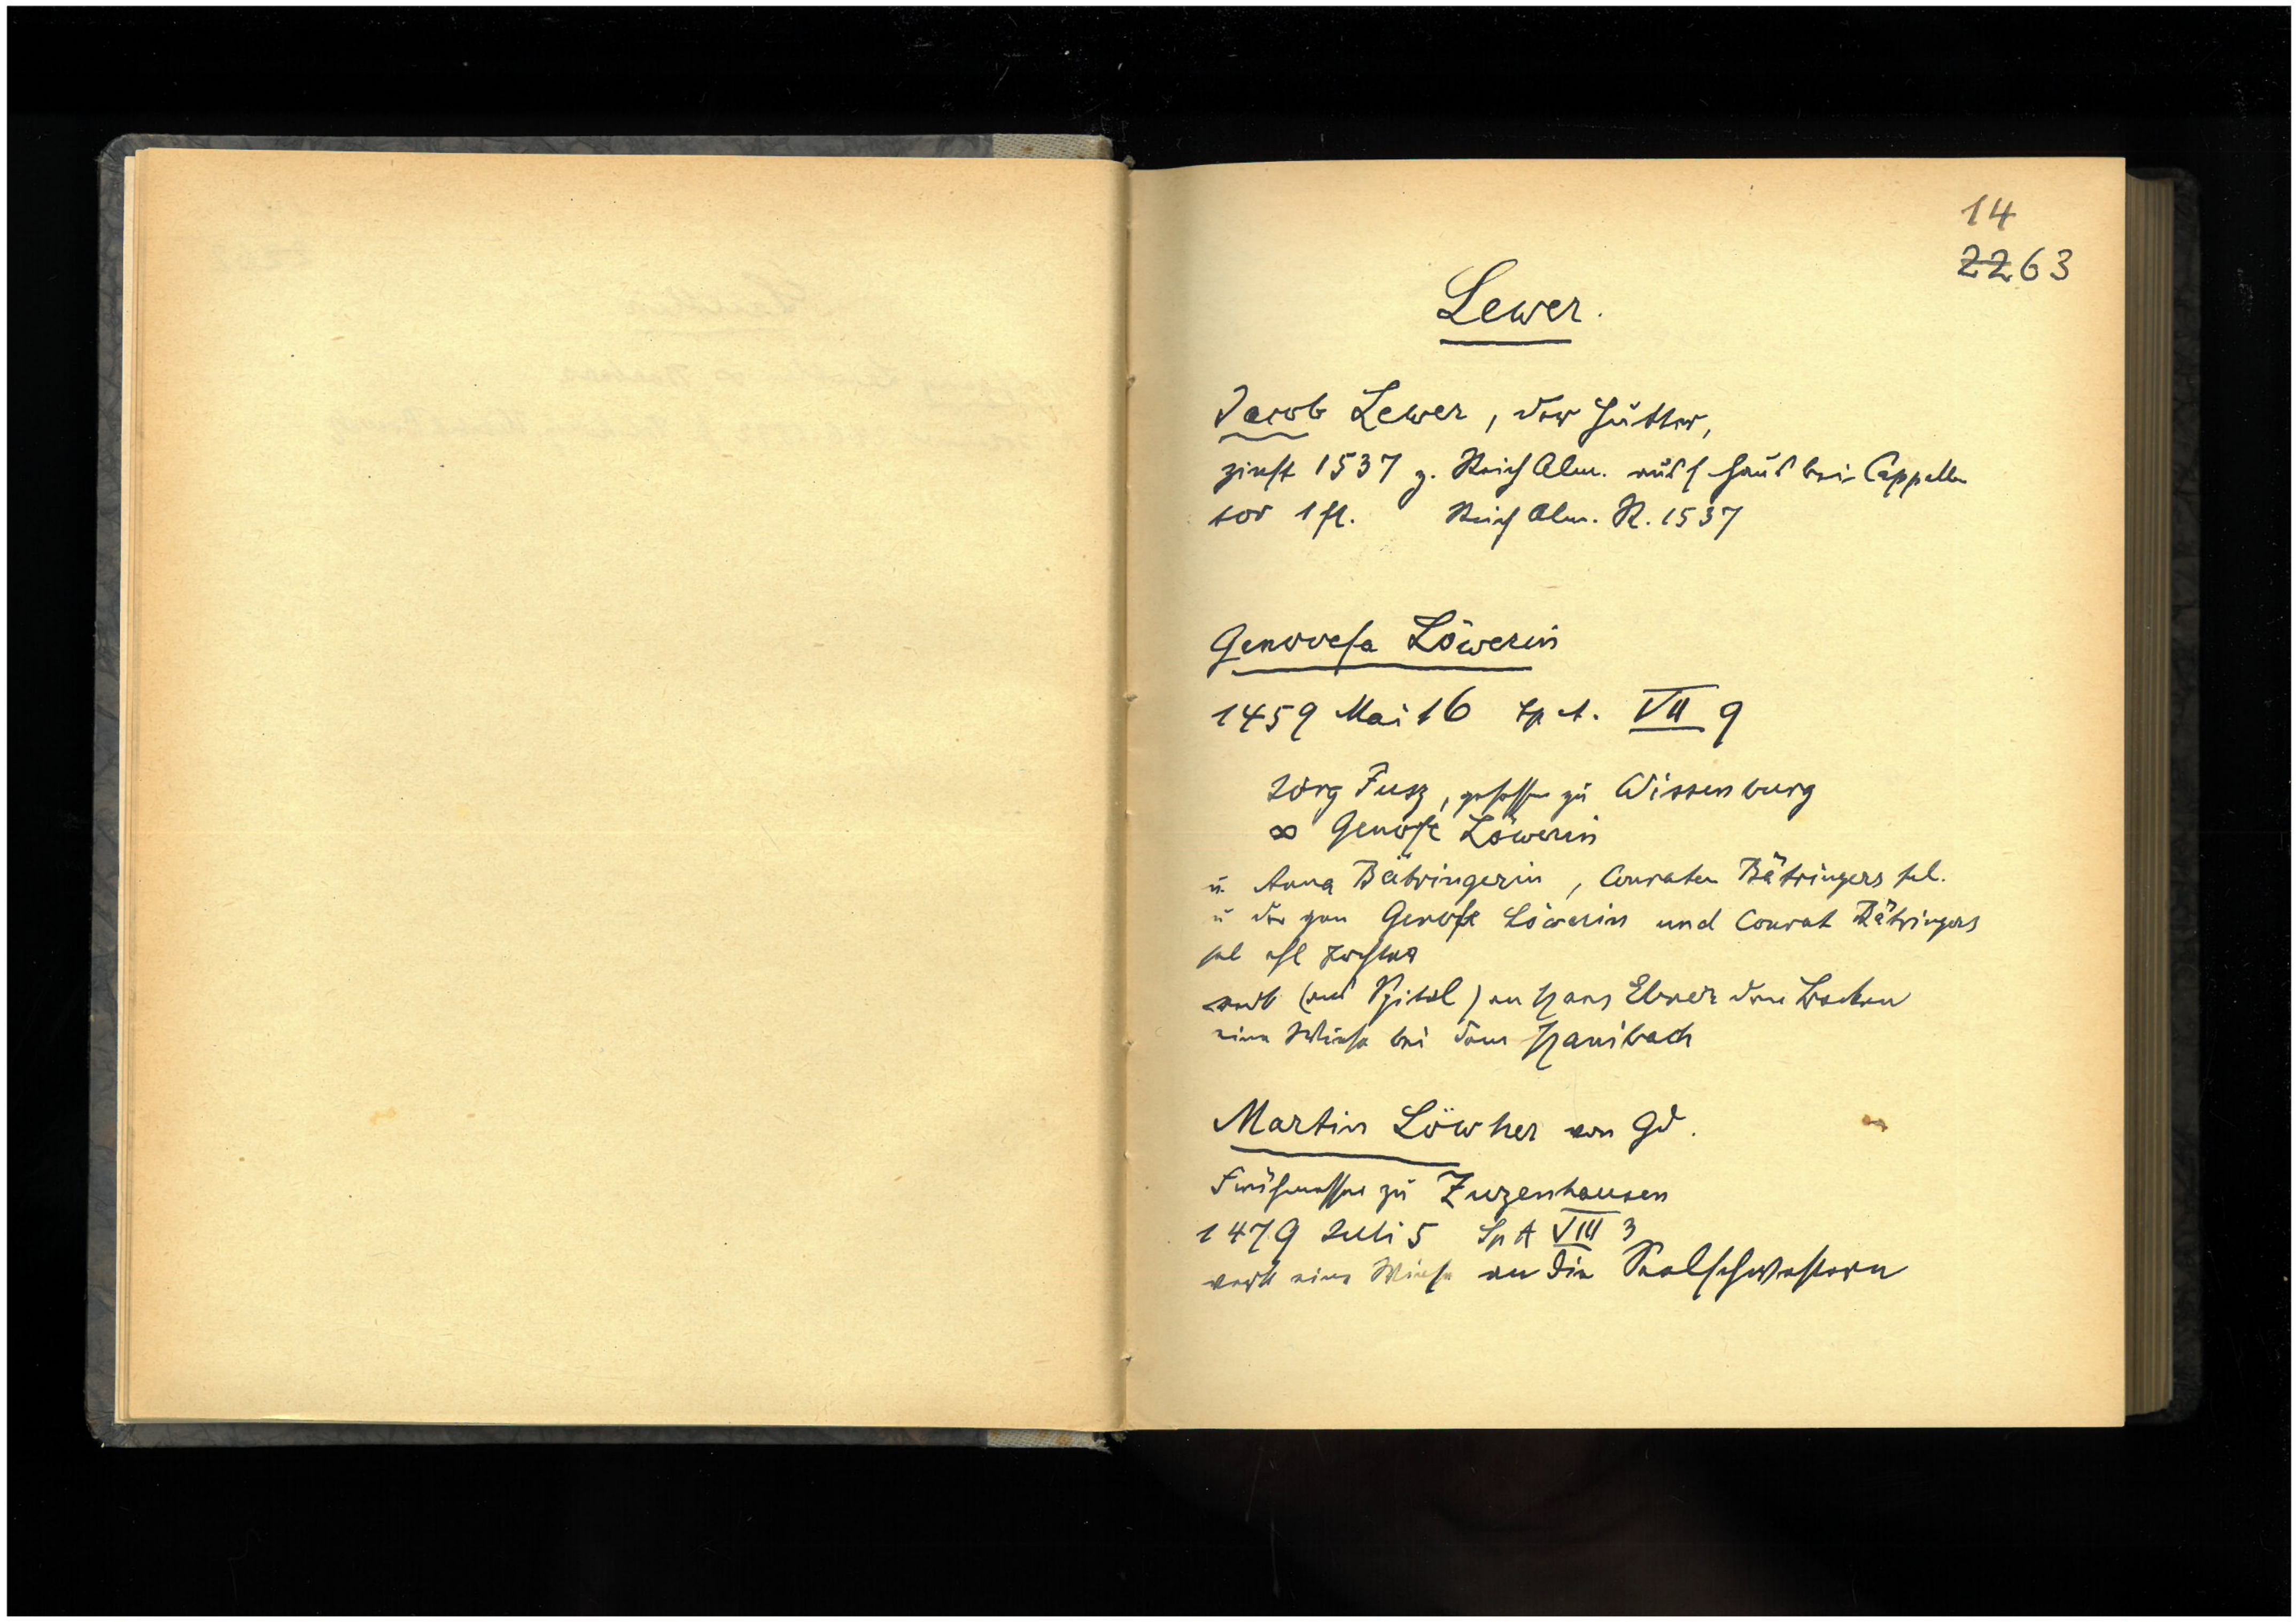 14
2263
Lewer.
Jacob Lewer, der Hutter,
zinst 1537 z. Reich Alm. aus s Haus bei Cappeller
tor 1 fl. Reich Alm. R. 1537
Genovefa Löwerin
1459 Mai 16 Sp A. VII 9
Jörg Fusz, gesessen zu Wissenburg
∞ Genofe Löwerin
u. Anna Bätringerin, Conraten Bätringers sel.
u der gen Genofe Löwerin und Conrat Bätringers
sel ehl Tochter
verk (aus Spital) an Hans Ebner den
eine Wiese bei dem Hanibach
Martin Löwher von Gd.
Frühmesser zu Zuzenhausen
1479 Juli 5 Sp A VIII 3
verk eine Wiese an die Seelschwestern